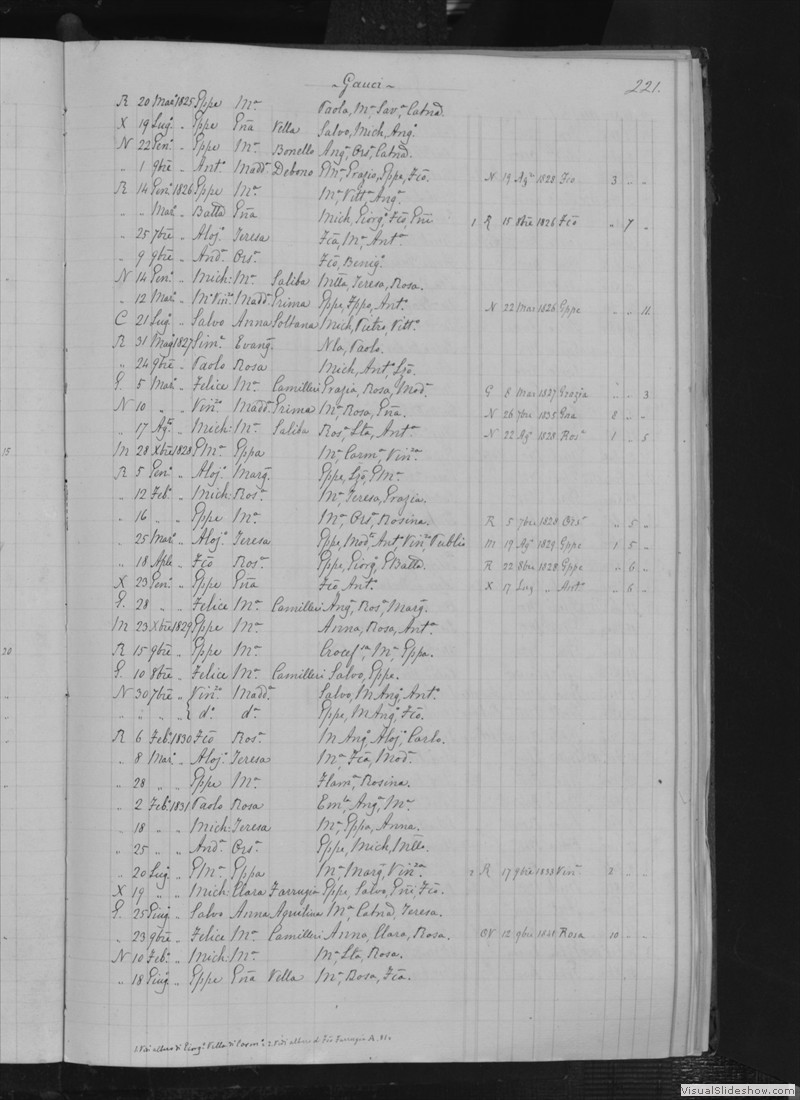 - Gauci -
221.
R 20 Mar. 1825 Gppe Mª Paola, Mª Savª, Catnā.
X 19 Lug. " Gppe Gña Vella Salvo, Mich, Angª
N 22 Gen. " Gppe Mª Bonello Angª, Orsª, Catnā.
" 1 9bre " Antº Madd. Debono GMª, Grazio, Gppe, Fcō. N 19 Agº 1828 Fco 3 " "
R 14 Gen. 1826 Gppe Mª Mª, Vittª, Angª
" " Mar. " Batta Gña Mich, Giorgº, Fcō, Gñi 1 R 15 8bre 1826 Fcō " 7 "
" 25 7bre " Alojº Teresa Fcā, Mª, Antª
" 9 9bre " Andª Orsª Fcō, Benigª
N 14 Gen. " Mich: Mª Saliba Teresa, Rosa.
" 12 Mar. " Madd. Grima Gppe, Fppo, Antª N 22 Mar 1826 Gppe " " 11.
C 21 Lug. " Salvo Anna Soltana Mich, Pietro, Vittª
R 31 Mag. 1827 Simª Evangª Nla, Paolo.
" 24 9bre " Paolo Rosa Mich, Antª
G. 5 Mar. " Felice Mª Camilleri Grazia, Rosa, Modª G 8 Mar 1827 Grazia " " 3
N 10 " " Vinzª Madd. Grima Mª, Rosa, Gña. N 26 7bre 1835 Gña 8 " "
" 17 Agº " Mich: Mª Saliba Rosª, Antª N 22 Agº 1828 Rosª 1 " 5
15
M 28 Xbre 1828 GMª Gppa Mª, Carmª, Vinzª
R 5 Gen. " Alojº Margª Gppe, GMª
" 12 Feb. " Mich: Rosª Mª, Teresa, Grazia.
" 16 " " Gppe Mª Mª, Orsª, Rosina. R 5 7bre 1828 Orsª " 5 "
" 25 Mar. " Alojº Teresa Gppe, Modª, Antº, Vinzº Publio M 19 Agº 1829 Gppe 1 5 "
" 18 Aple " Fcō Rosª Gppe, Giorgº, GBatta. R 22 8bre 1828 Gppe " 6 "
X 23 Gen. " Gppe Gña Fcō, Antª X 17 Lug " Antª " 6 "
G. 28 " " Felice Mª Camilleri Angª, Rosª, Margª
M 23 Xbre 1829 Gppe Mª Anna, Rosa, Antª
20
R 15 9bre " Gppe Mª Crocefª, Mª, Gppa.
G. 10 8bre " Felice Mª Camilleri Salvo, Gppe.
N 30 7bre " Vinzº Maddª Salvo, M Angº, Antº
" " " " { dº dª Gppe, M Angº, Fcō.
R 6 Feb. 1830 Fcō Rosª M Angº, Alojº, Carlo.
" 8 Mar. " Alojº Teresa Mª, Fcā, Modª
" 28 " " Gppe Mª Flamª, Rosina.
" 2 Feb. 1831 Paolo Rosa Emlª, Angª, Mª
" 18 " " Mich: Teresa Mª, Gppa, Anna.
" 25 " " Andª Orsª Gppe, Mich,
" 20 Lug. " GMª Gppa Mª, Margª, Vinzª 2 R 17 9bre 1833 Vinzª 2 " "
X 19 " " Mich: Clara Farrugia Gppe, Salvo, Gñi, Fcō.
G. 25 Giug. " Salvo Anna Aquilina Mª, Catnā, Teresa.
" 23 9bre " Felice Mª Camilleri Anna, Clara, Rosa. 12 9bre 1841 Rosa 10 " "
N 10 Feb. " Mich: Mª Mª, Rosa.
" 18 Giug. " Gppe Gña Vella Mª, Rosa, Fcā.
1. Vedi albero di Giorgº Vella di 2. Vedi albero di Fcō Farrugia
VisualSlideshow.com